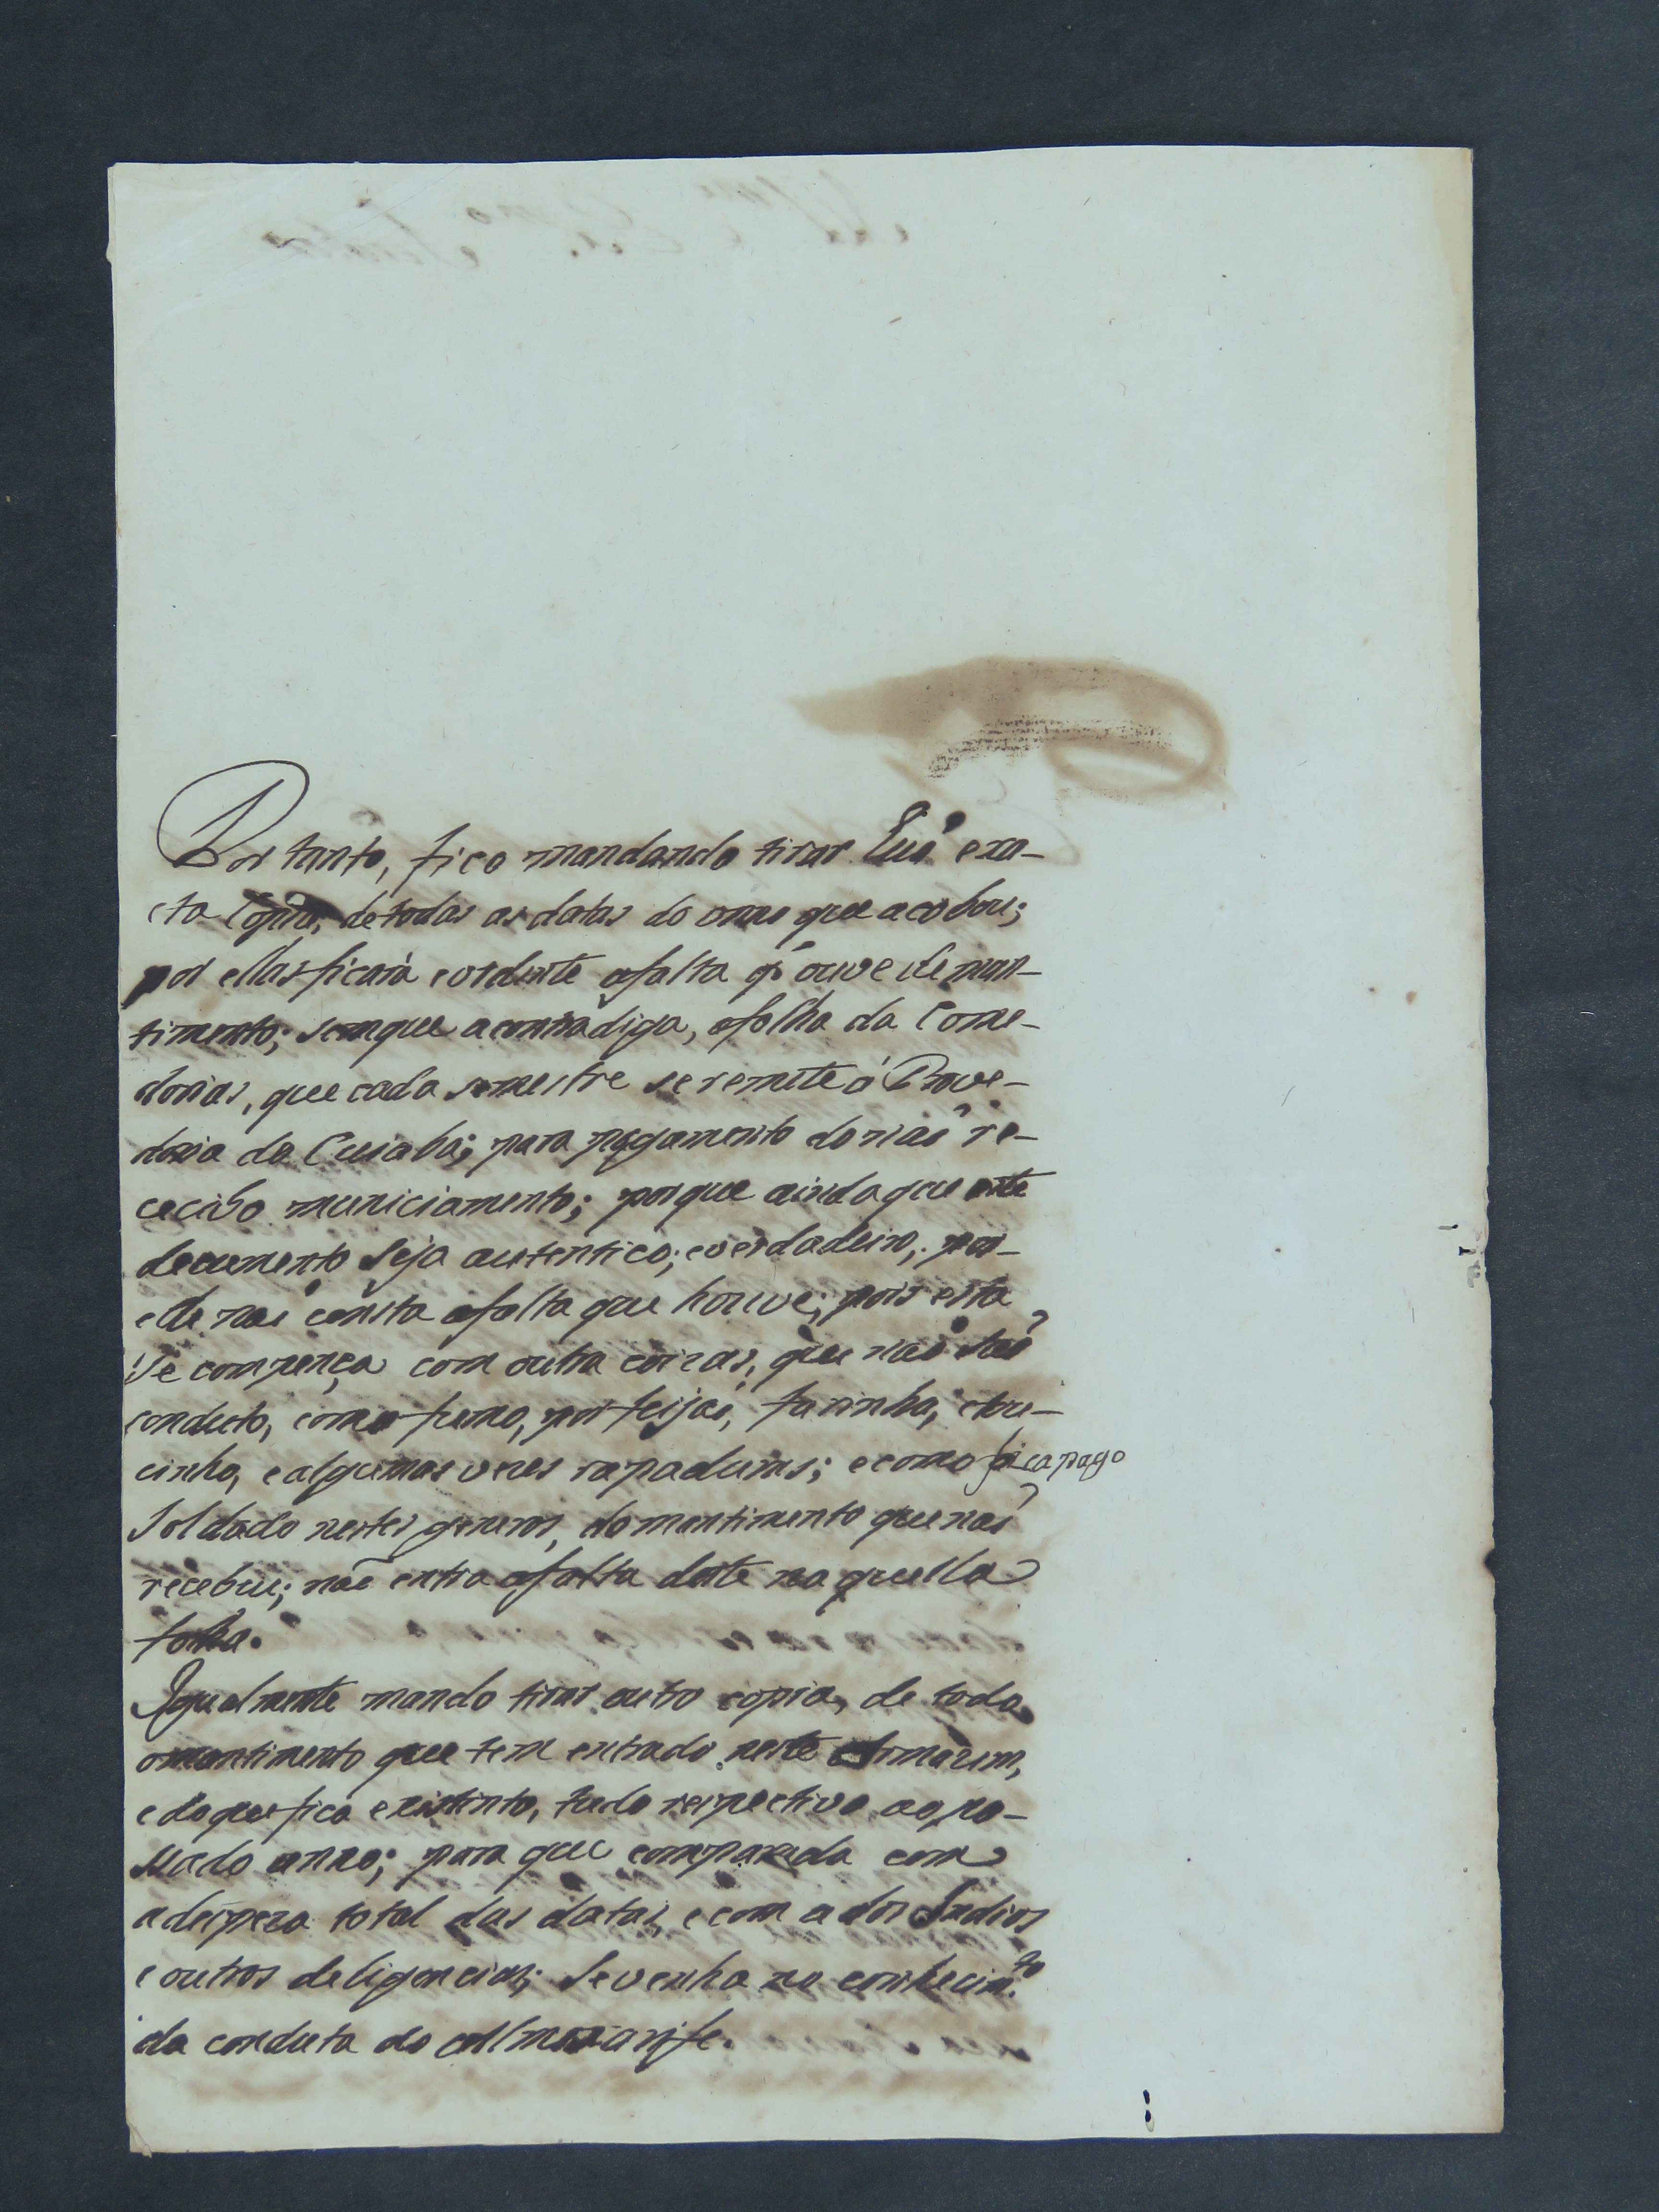 Por tanto, fico mandando tirar huã exa-
cta Copia, de todas as datas do anno que acabou;
por ellas ficará evidente afalta q̃ ouve de man-
timento; semque acontradiga, afolha da Come-
dorias, que cada semestre se remete á Prove-
doria do Cuiabá; para pagamento do naõ re-
cecibo municiamento; porque ainda que este
documento seja autentico, everdadeiro, por
elle naõ consta afalta que houve; pois esta
se compença com outra coizas, que naõ saõ
conducto, como fumo, por feijaõ, farinha, etou-
cinho, ealgumas vezes rapaduras; ecomo fica pago
Soldado nestes generos, do mantimento que naõ
recebeu; naõ entra afalta deste naquella
folha.
Igualmente mando tirar outra copia, de todo
omantimento que tem entrado neste Armazem,
edoque fica existinto, tudo respectivo ao pa-
ssado anno; para que comparada com
adespeza total das datas, ecom a dos Indios
e outros deligencias; Sevenha no conhecim.to
da conduta do Almoxarife.